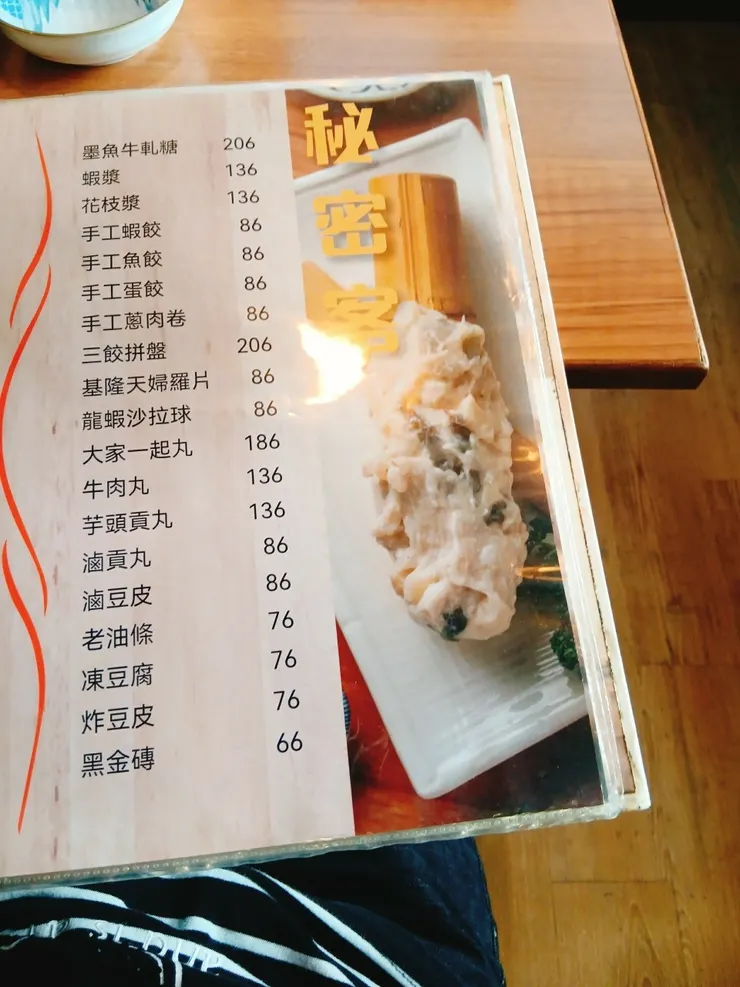 秘密客
墨魚牛軋糖 206
蝦漿 136
花枝漿 136
手工蝦餃 86
手工魚餃 86
手工蛋餃 86
手工蔥肉卷 86
三餃拼盤 206
基隆天婦羅片 86
龍蝦沙拉球 86
大家一起丸 186
牛肉丸 136
芋頭貢丸 136
滷貢丸 86
滷豆皮 86
老油條 76
凍豆腐 76
炸豆皮 76
黑金磚 66